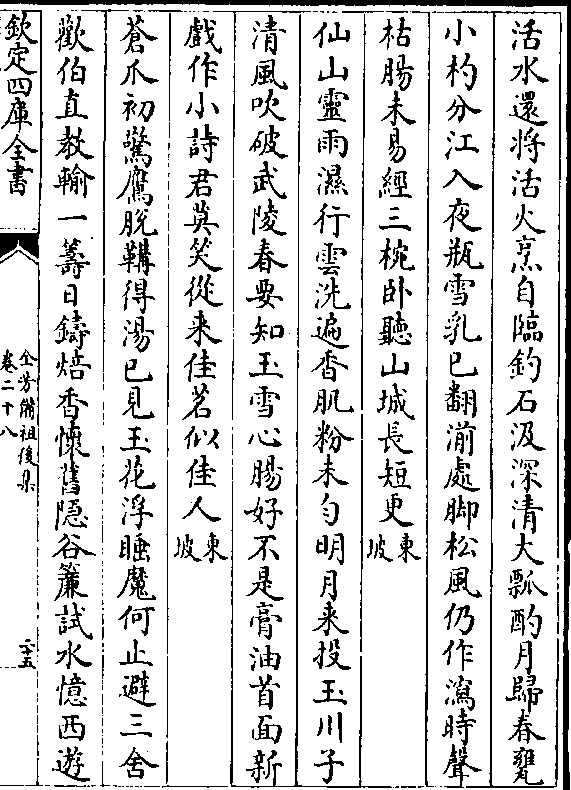 活水還將活火烹自臨釣石汲深清大瓢酌月歸春甕
小杓分江入夜瓶雪乳已翻湔處脚松風仍作瀉時聲
枯腸未易經三椀卧聽山城長短更東坡
仙山靈雨濕行雲洗遍香肌粉未勻明月来投玉川子
清風吹破武陵春要知玉雪心腸好不是膏油首面新
戲作小詩君莫笑從来佳茗似佳人東坡
蒼爪初驚鷹脫鞲得湯已見玉花浮睡魔何止避三舍
歡伯直教輸一籌日鑄焙香懷舊隐谷簾試水憶西遊
欽定四庫全書
全芳備祖後集
卷二十八
二十五